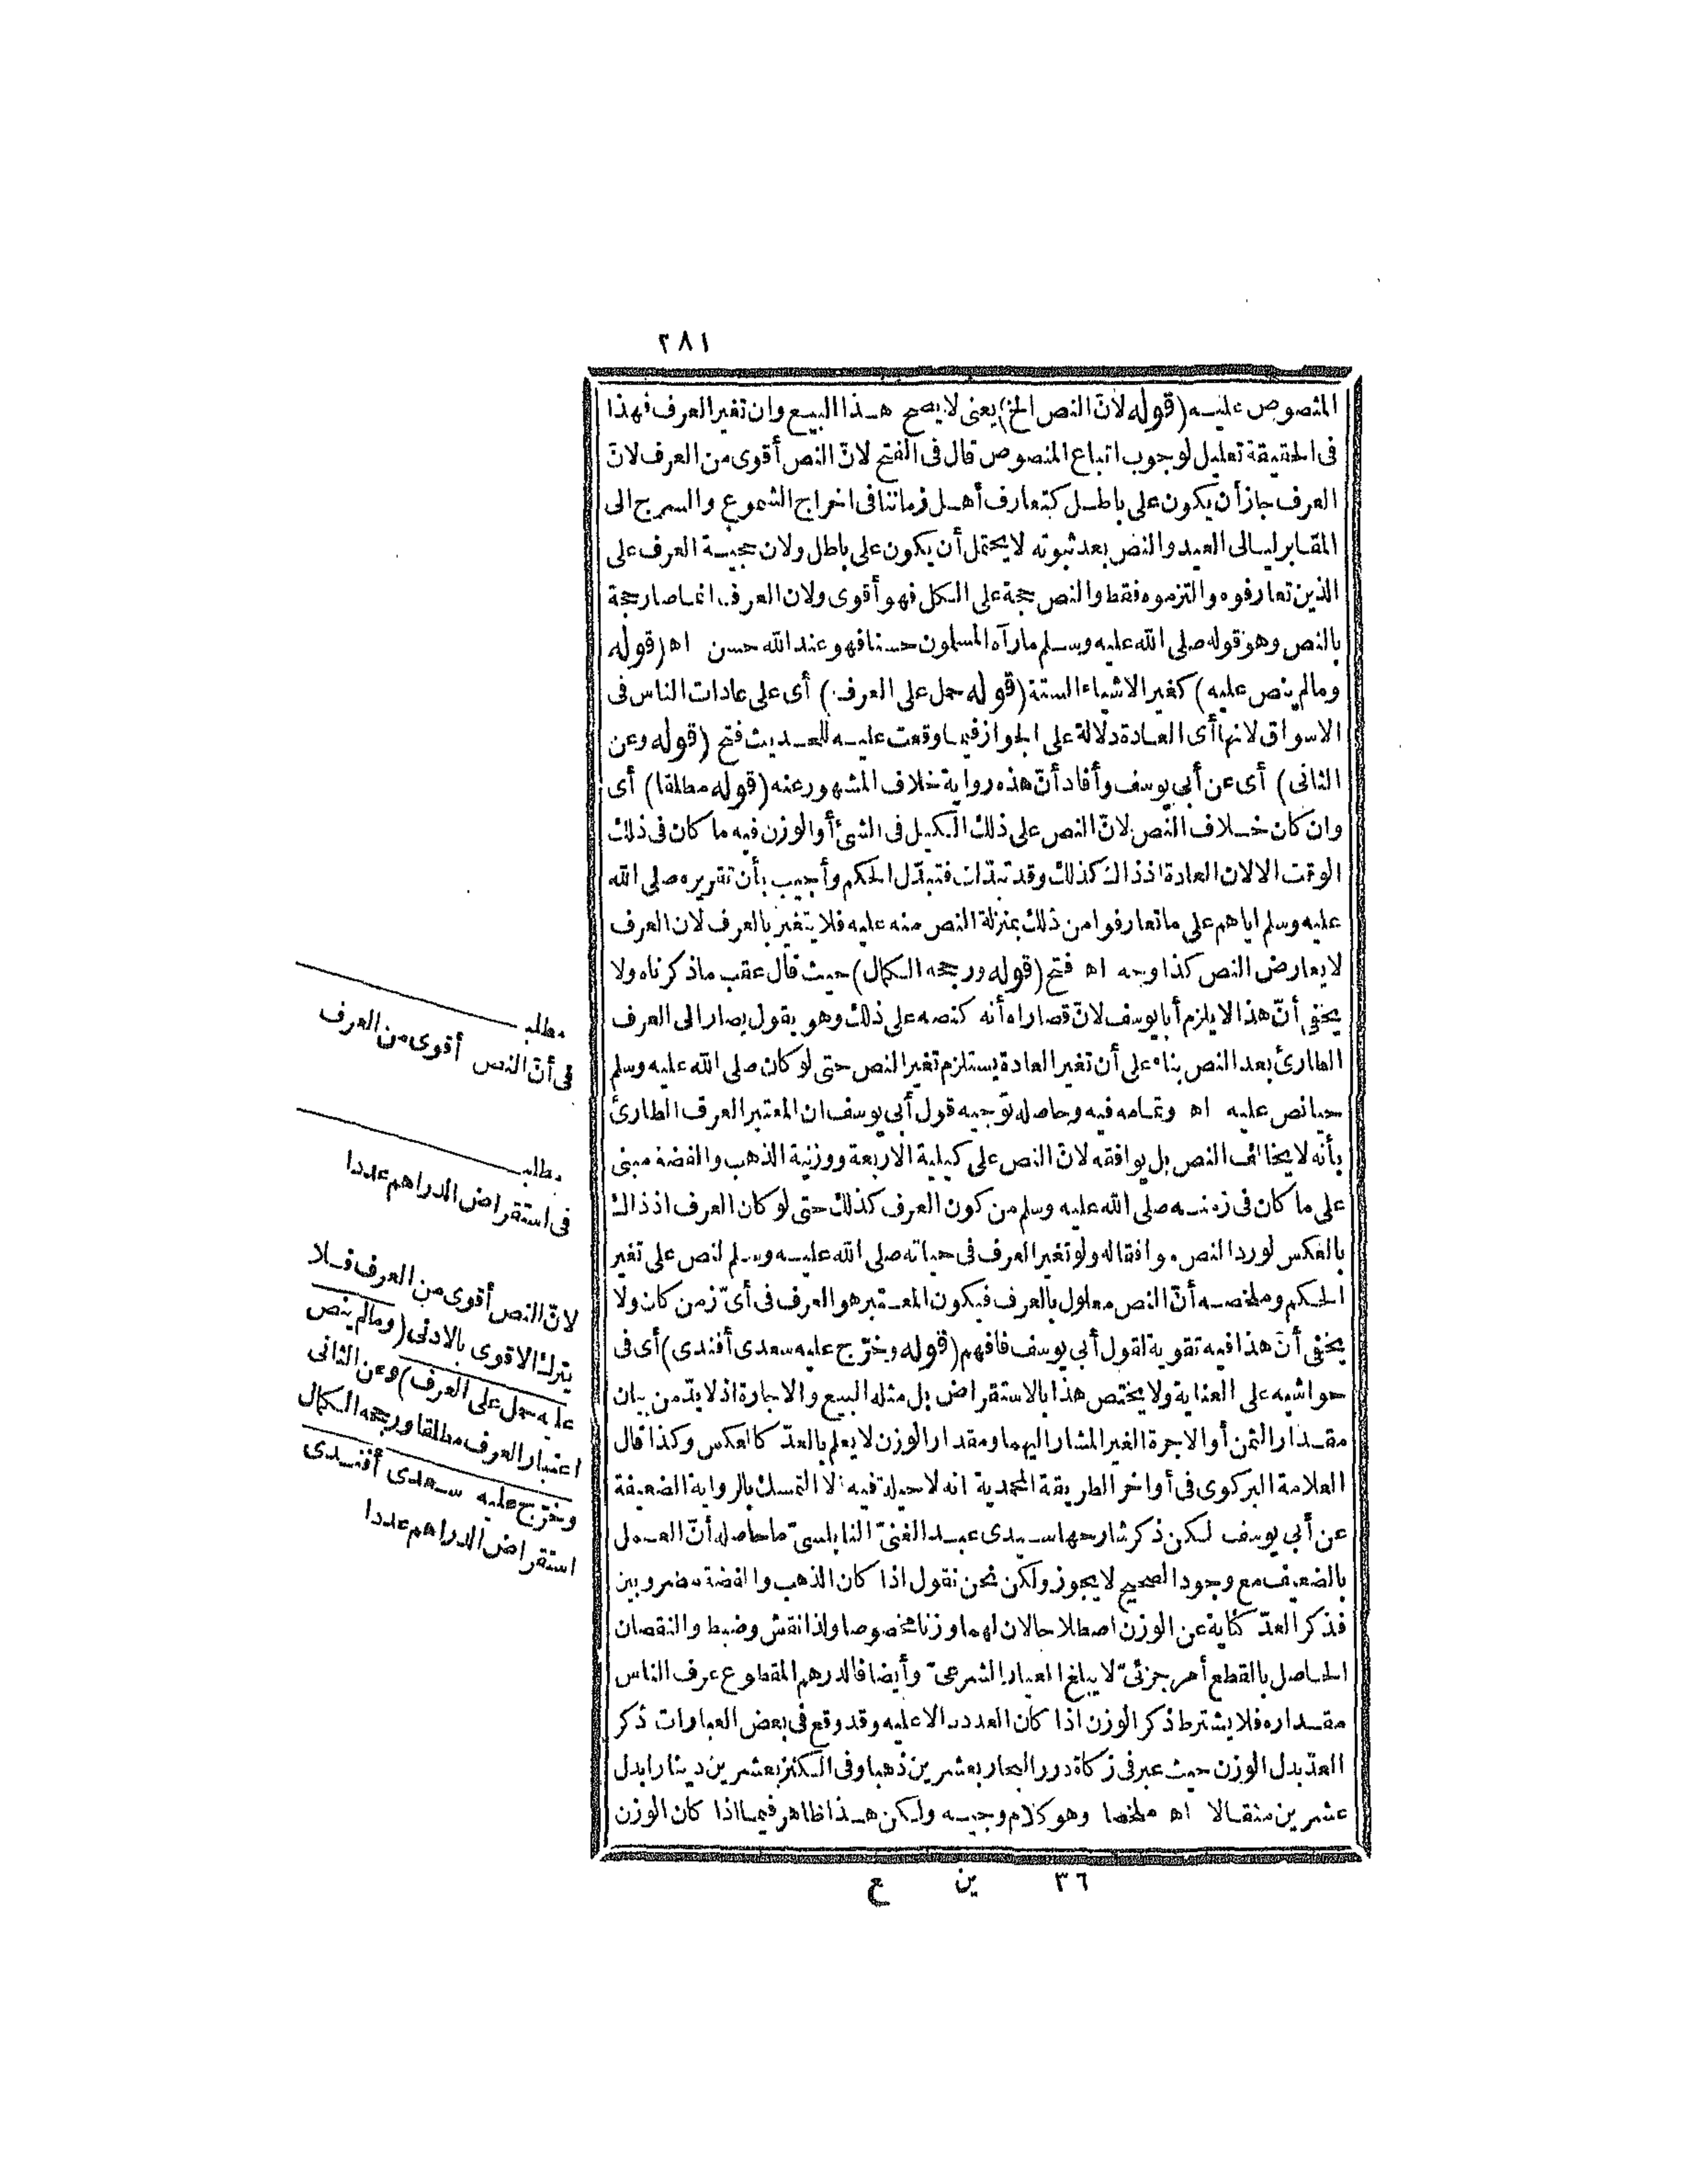 ٢٨١
المنصوص عليه (قوله لانّ النص الخ) يعنى لا يصح هذا البيع وان تغير العرف فهذا
فى الحقيقة تعليل لوجوب اتباع المنصوص قال فى الفتح لانّ النص أقوى من العرف لانّ
العرف جاز أن يكون على باطل كتعارف أهل زماننا فى اخراج الشموع والسرج الى
المقابر ليالى العيد والنص بعد ثبوته لا يحتمل أن يكون على باطل ولان حجية العرف على
الذين تعارفوه والتزموه فقط والنص حجة على الكل فهو أقوى ولان العرف انما صار حجة
بالنص وهو قوله صلى الله عليه وسلم ما رآه المسلمون حسنا فهو عند الله حسن اه (قوله
وما لم ينص عليه) كغير الاشياء الستة (قوله حمل على العرف) أى على عادات الناس فى
الاسواق لانها أى العادة دلالة على الجواز فيما وقعت عليه للحديث فتح (قوله وعن
الثانى) أى عن أبى يوسف وأفاد أنّ هذه رواية خلاف المشهور عنه (قوله مطلقا) أى
وان كان خلاف النص لانّ النص على ذلك الكيل فى الشئ أو الوزن فيه ما كان فى ذلك
الوقت الا لان العادة اذ ذاك كذلك وقد تبدّلت فتبدّل الحكم وأجيب بأن تقريره صلى الله
عليه وسلم اياهم على ما تعارفوا من ذلك بمنزلة النص منه عليه فلا يتغير بالعرف لان العرف
لا يعارض النص كذا وجه اه فتح (قوله ورجحه الكمال) حيث قال عقب ما ذكرناه ولا
يخفى أنّ هذا لا يلزم أبا يوسف لانّ قصاراه أنه كنصه على ذلك وهو يقول يصار الى العرف
الطارئ بعد النص بناء على أن تغير العادة يستلزم تغير النص حتى لو كان صلى الله عليه وسلم
حيا نص عليه اه وتمامه فيه وحاصله توجيه قول أبى يوسف ان المعتبر العرف الطارئ
بأنه لا يخالف النص بل يوافقه لانّ النص على كيلية الاربعة ووزنية الذهب والفضة مبنى
على ما كان فى زمنه صلى الله عليه وسلم من كون العرف كذلك حتى لو كان العرف اذ ذاك
بالعكس لورد النص موافقا له ولو تغير العرف فى حياته صلى الله عليه وسلم لنص على تغير
الحكم وملخصه أنّ النص معلول بالعرف فيكون المعتبر هو العرف فى أىّ زمن كان ولا
يخفى أنّ هذا فيه تقوية لقول أبى يوسف فافهم (قوله وخرّج عليه سعدى أفندى) أى فى
حواشيه على العناية ولا يختص هذا بالاستقراض بل مثله البيع والاجارة اذ لا بدّ من بيان
مقدار الثمن أو الاجرة الغير المشار اليهما ومقدار الوزن لا يعلم بالعدّ كالعكس وكذا قال
العلامة البركوى فى أواخر الطريقة المحمدية انه لا حيلة فيه الا التمسك بالرواية الضعيفة
عن أبى يوسف لكن ذكر شارحها سيدى عبد الغنىّ النابلسىّ ما حاصله أنّ العمل
بالضعيف مع وجود الصحيح لا يجوز ولكن نحن نقول اذا كان الذهب والفضة مضروبين
فذكر العدّ كناية عن الوزن اصطلاحا لان لهما وزنا مخصوصا ولذا نقش وضبط والنقصان
الحاصل بالقطع أمر جزئىّ لا يبلغ المعيار الشرعىّ وأيضا فالدرهم المقطوع عرف الناس
مقداره فلا يشترط ذكر الوزن اذا كان العدد دالا عليه وقد وقع فى بعض العبارات ذكر
العدّ بدل الوزن حيث عبر فى زكاة درر البحار بعشرين ذهبا وفى الكنز بعشرين دينارا بدل
عشرين مثقالا اه ملخصا وهو كلام وجيه ولكن هذا ظاهر فيما اذا كان الوزن
مطلب
فى أنّ النص أقوى من العرف
مطلب
فى استقراض الدراهم عددا
لانّ النص أقوى من العرف فلا
يترك الاقوى بالادنى (وما لم ينص
عليه حمل على العرف) وعن الثانى
اعتبار العرف مطلقا ورجحه الكمال
وخرّج عليه سعدى أفندى
استقراض الدراهم عددا
٣٦ ين ع